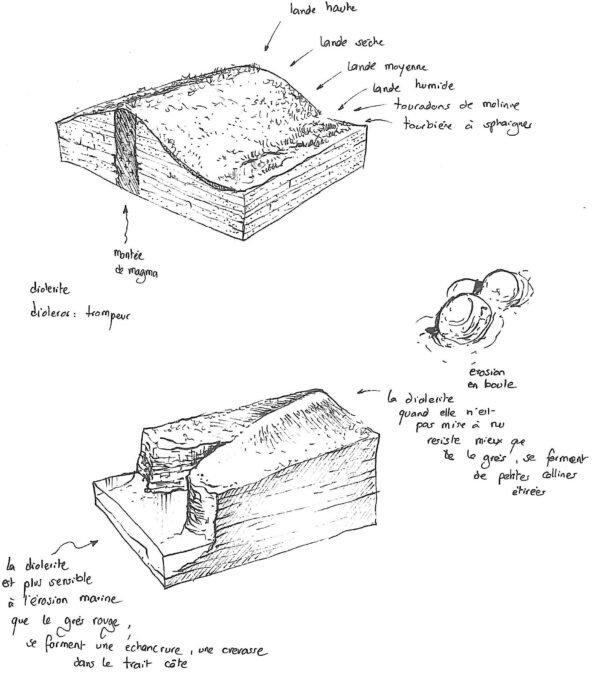 lande haute
lande sèche
lande moyenne
lande humide
touradons de molinie
tourbière à sphaignes
montée
de magma
diolerite
dioleros : trompeur
érosion
en boule
la diolerite
quand elle n'est
pas mise à nu
resiste mieux que
le grès, se forment
de petites collines
étirées
la diolerite
est plus sensible
à l'érosion marine
que le grès rouge,
se forment une échancrure, une crevasse
dans le trait côte